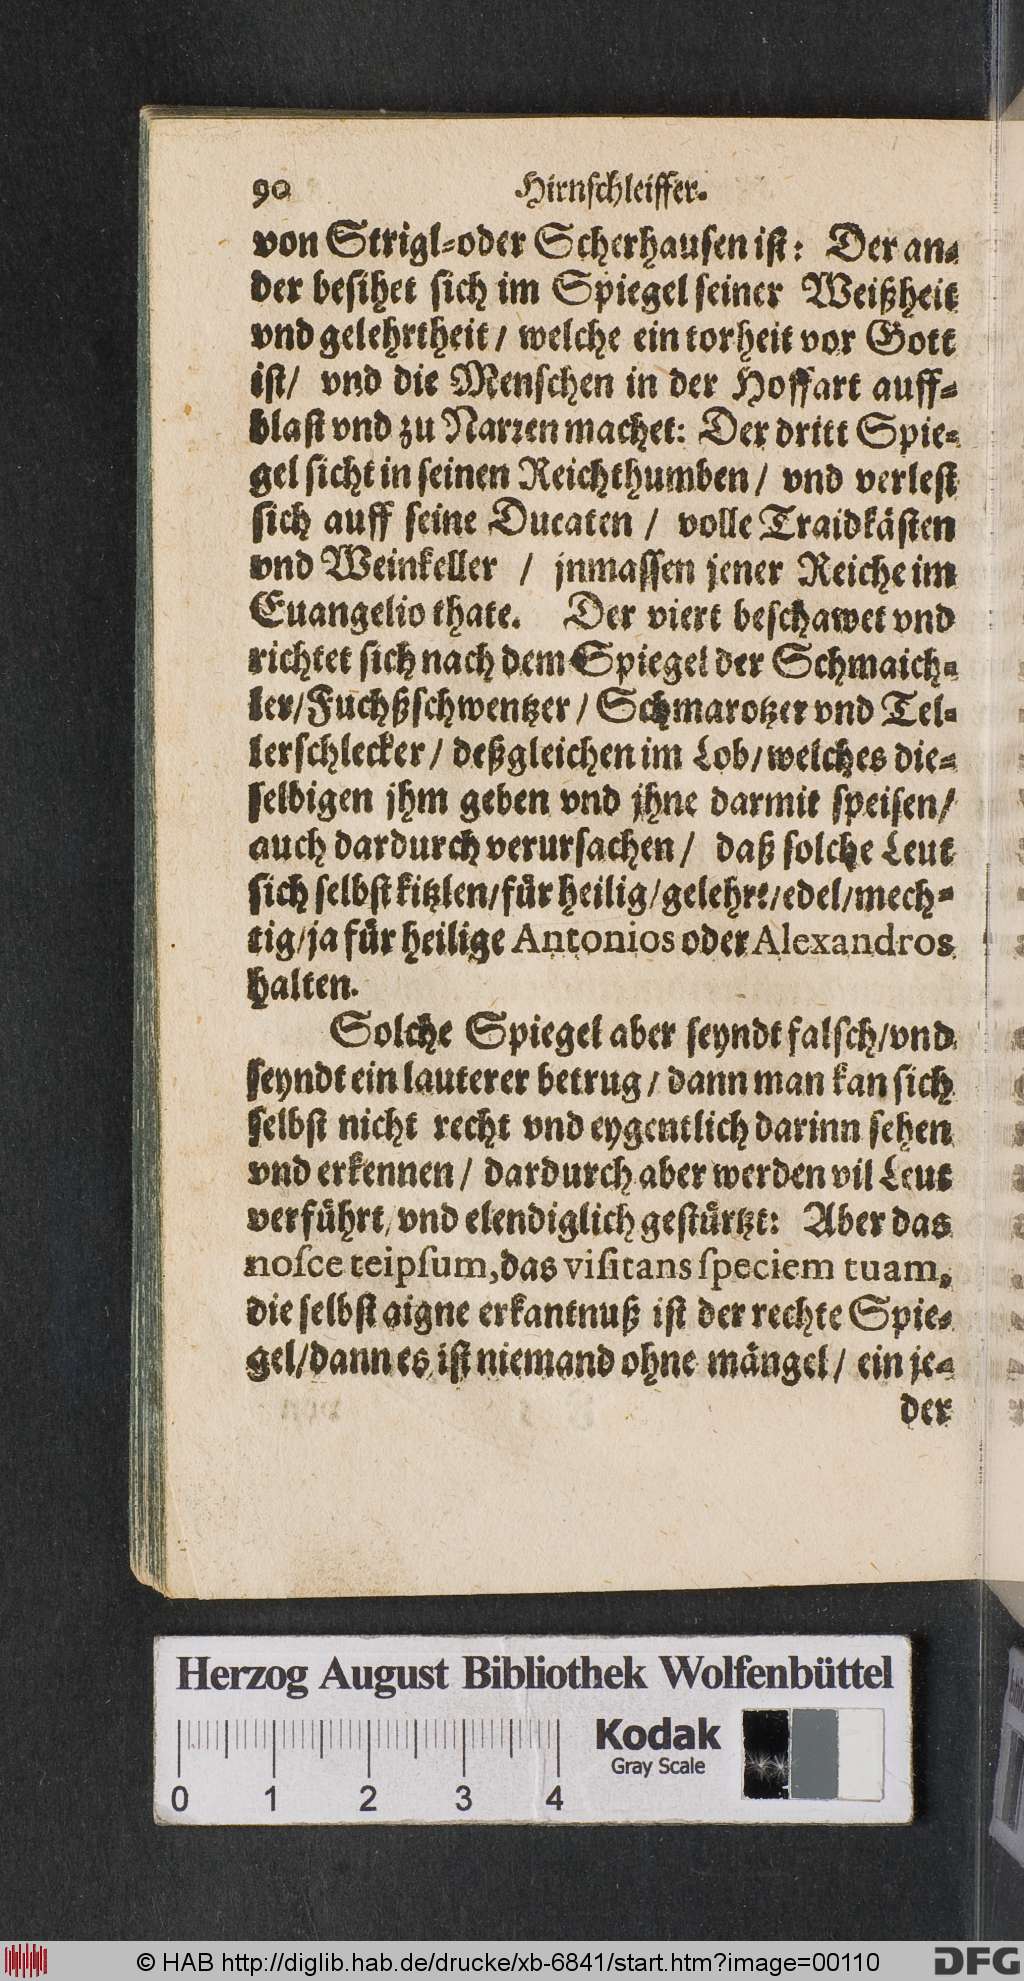 90 Hirnschleiffer.
von Strigl-oder Scherhausen ist: Der an-
der besihet sich im Spiegel seiner Weißheit
vnd gelehrtheit / welche ein torheit vor Gott
ist/ vnd die Menschen in der Hoffart auff-
blast vnd zu Narren machet: Der dritt Spie-
gel sicht in seinen Reichthumben / vnd verlest
sich auff seine Ducaten / volle Traidkästen
vnd Weinkeller / jnmassen jener Reiche im
Euangelio thate. Der viert beschawet vnd
richtet sich nach dem Spiegel der Schmaich-
ler/Fuchßschwentzer / Schmarotzer vnd Tel-
lerschlecker / deßgleichen im Lob/welches die-
selbigen jhm geben vnd jhne darmit speisen/
auch dardurch verursachen / daß solche Leut
sich selbst kitzlen/für heilig/gelehrt/edel/mech-
tig/ja für heilige Antonios oder Alexandros
halten.
Solche Spiegel aber seyndt falsch/vnd
seyndt ein lauterer betrug / dann man kan sich
selbst nicht recht vnd eygentlich darinn sehen
vnd erkennen / dardurch aber werden vil Leut
verführt/vnd elendiglich gestürtzt: Aber das
nosce teipsum,das visitans speciem tuam,
die selbst aigne erkantnuß ist der rechte Spie-
gel/dann es ist niemand ohne mängel / ein je-
der
Herzog August Bibliothek Wolfenbüttel
Kodak
Gray Scale
0 1 2 3 4
© HAB http://diglib.hab.de/drucke/xb-6841/start.htm?image=00110
DFG